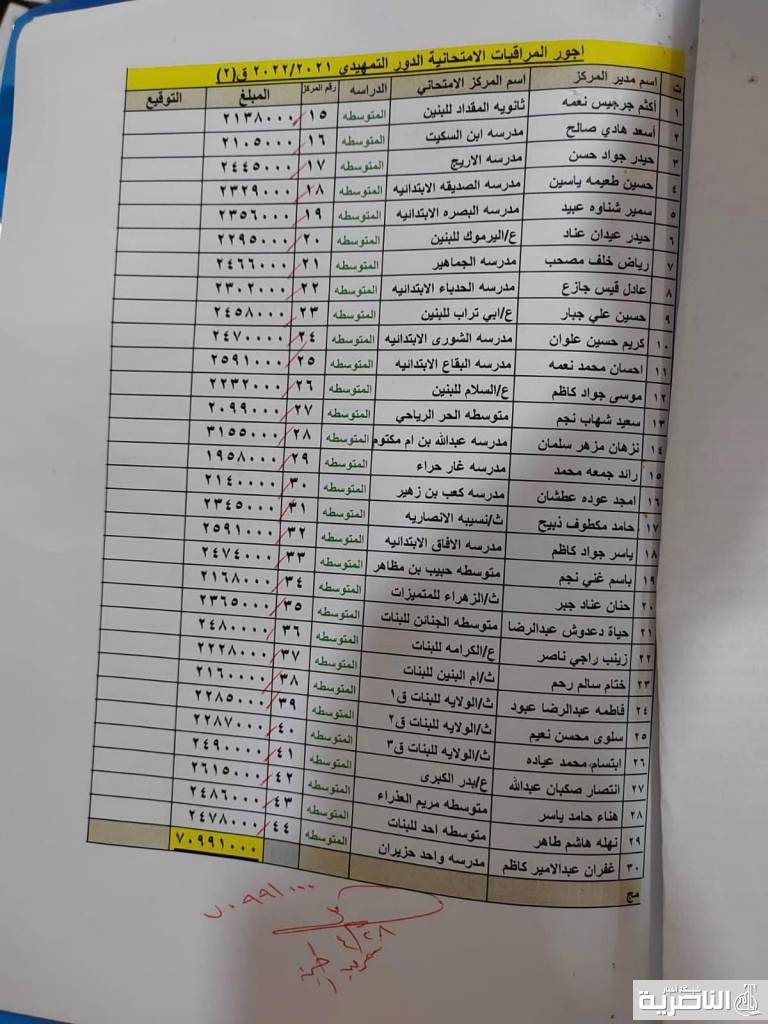 اجور المراقبات الامتحانية الدور التمهيدي ٢٠٢٢/٢٠٢١ ق(٢)
ت اسم مدير المركز اسم المركز الامتحاني الدراسه رقم المركز المبلغ التوقيع
١ أكثم جرجيس نعمه ثانويه المقداد للبنين المتوسطه ١٥ ٢١٣٨٠٠٠
٢ أسعد هادي صالح مدرسه ابن السكيت المتوسطه ١٦ ٢١٠٥٠٠٠
٣ حيدر جواد حسن مدرسه الاريج المتوسطه ١٧ ٢٤٤٥٠٠٠
٤ حسين طعيمه ياسين مدرسه الصديقه الابتدائيه المتوسطه ١٨ ٢٣٢٩٠٠٠
٥ سمير شناوه عبيد مدرسه البصره الابتدائيه المتوسطه ١٩ ٢٣٥٦٠٠٠
٦ حيدر عيدان عناد ع/اليرموك للبنين المتوسطه ٢٠ ٢٢٩٥٠٠٠
٧ رياض خلف مصحب مدرسه الجماهير المتوسطه ٢١ ٢٤٦٦٠٠٠
٨ عادل قيس جازع مدرسه الحدباء الابتدائيه المتوسطه ٢٢ ٢٣٠٢٠٠٠
٩ حسين علي جبار ع/ابي تراب للبنين المتوسطه ٢٣ ٢٤٥٨٠٠٠
١٠ كريم حسين علوان مدرسه الشورى الابتدائيه المتوسطه ٢٤ ٢٤٧٠٠٠٠
١١ احسان محمد نعمه مدرسه البقاع الابتدائيه المتوسطه ٢٥ ٢٥٩١٠٠٠
١٢ موسى جواد كاظم ع/السلام للبنين المتوسطه ٢٦ ٢٢٣٢٠٠٠
١٣ سعيد شهاب نجم متوسطه الحر الرياحي المتوسطه ٢٧ ٢٠٩٩٠٠٠
١٤ نزهان مزهر سلمان مدرسه عبدالله بن ام مكتوم المتوسطه ٢٨ ٣١٥٥٠٠٠
١٥ رائد جمعه محمد مدرسه غار حراء المتوسطه ٢٩ ١٩٥٨٠٠٠
١٦ امجد عوده عطشان مدرسه كعب بن زهير المتوسطه ٣٠ ٢١٤٠٠٠٠
١٧ حامد مكطوف ذبيح ث/نسيبه الانصاريه المتوسطه ٣١ ٢٣٤٥٠٠٠
١٨ ياسر جواد كاظم مدرسه الافاق الابتدائيه المتوسطه ٣٢ ٢٥٩١٠٠٠
١٩ باسم غني نجم متوسطه حبيب بن مظاهر المتوسطه ٣٣ ٢٤٧٤٠٠٠
٢٠ حنان عناد جبر ث/الزهراء للمتميزات المتوسطه ٣٤ ٢١٦٨٠٠٠
٢١ حياة دعدوش عبدالرضا متوسطه الجنائن للبنات المتوسطه ٣٥ ٢٣٦٥٠٠٠
٢٢ زينب راجي ناصر ع/الكرامه للبنات المتوسطه ٣٦ ٢٤٨٠٠٠٠
٢٣ ختام سالم رحم ث/ام البنين للبنات المتوسطه ٣٧ ٢٢٢٨٠٠٠
٢٤ فاطمه عبدالرضا عبود ث/الولايه للبنات ق١ المتوسطه ٣٨ ٢١٦٠٠٠٠
٢٥ سلوى محسن نعيم ث/الولايه للبنات ق٢ المتوسطه ٣٩ ٢٢٨٥٠٠٠
٢٦ ابتسام محمد عياده ث/الولايه للبنات ق٣ المتوسطه ٤٠ ٢٢٨٧٠٠٠
٢٧ انتصار صكبان عبدالله ع/بدر الكبرى المتوسطه ٤١ ٢٤٩٠٠٠٠
٢٨ هناء حامد ياسر متوسطه مريم العذراء المتوسطه ٤٢ ٢٦١٥٠٠٠
٢٩ نهله هاشم طاهر متوسطه احد للبنات المتوسطه ٤٣ ٢٤٨٦٠٠٠
٣٠ غفران عبدالامير كاظم مدرسه واحد حزيران المتوسطه ٤٤ ٢٤٧٨٠٠٠
مج ٧٠٩٩١٠٠٠
٧٠٩٩١٠٠٠
٤/٢٨
شبكة أخبار
الناصرية